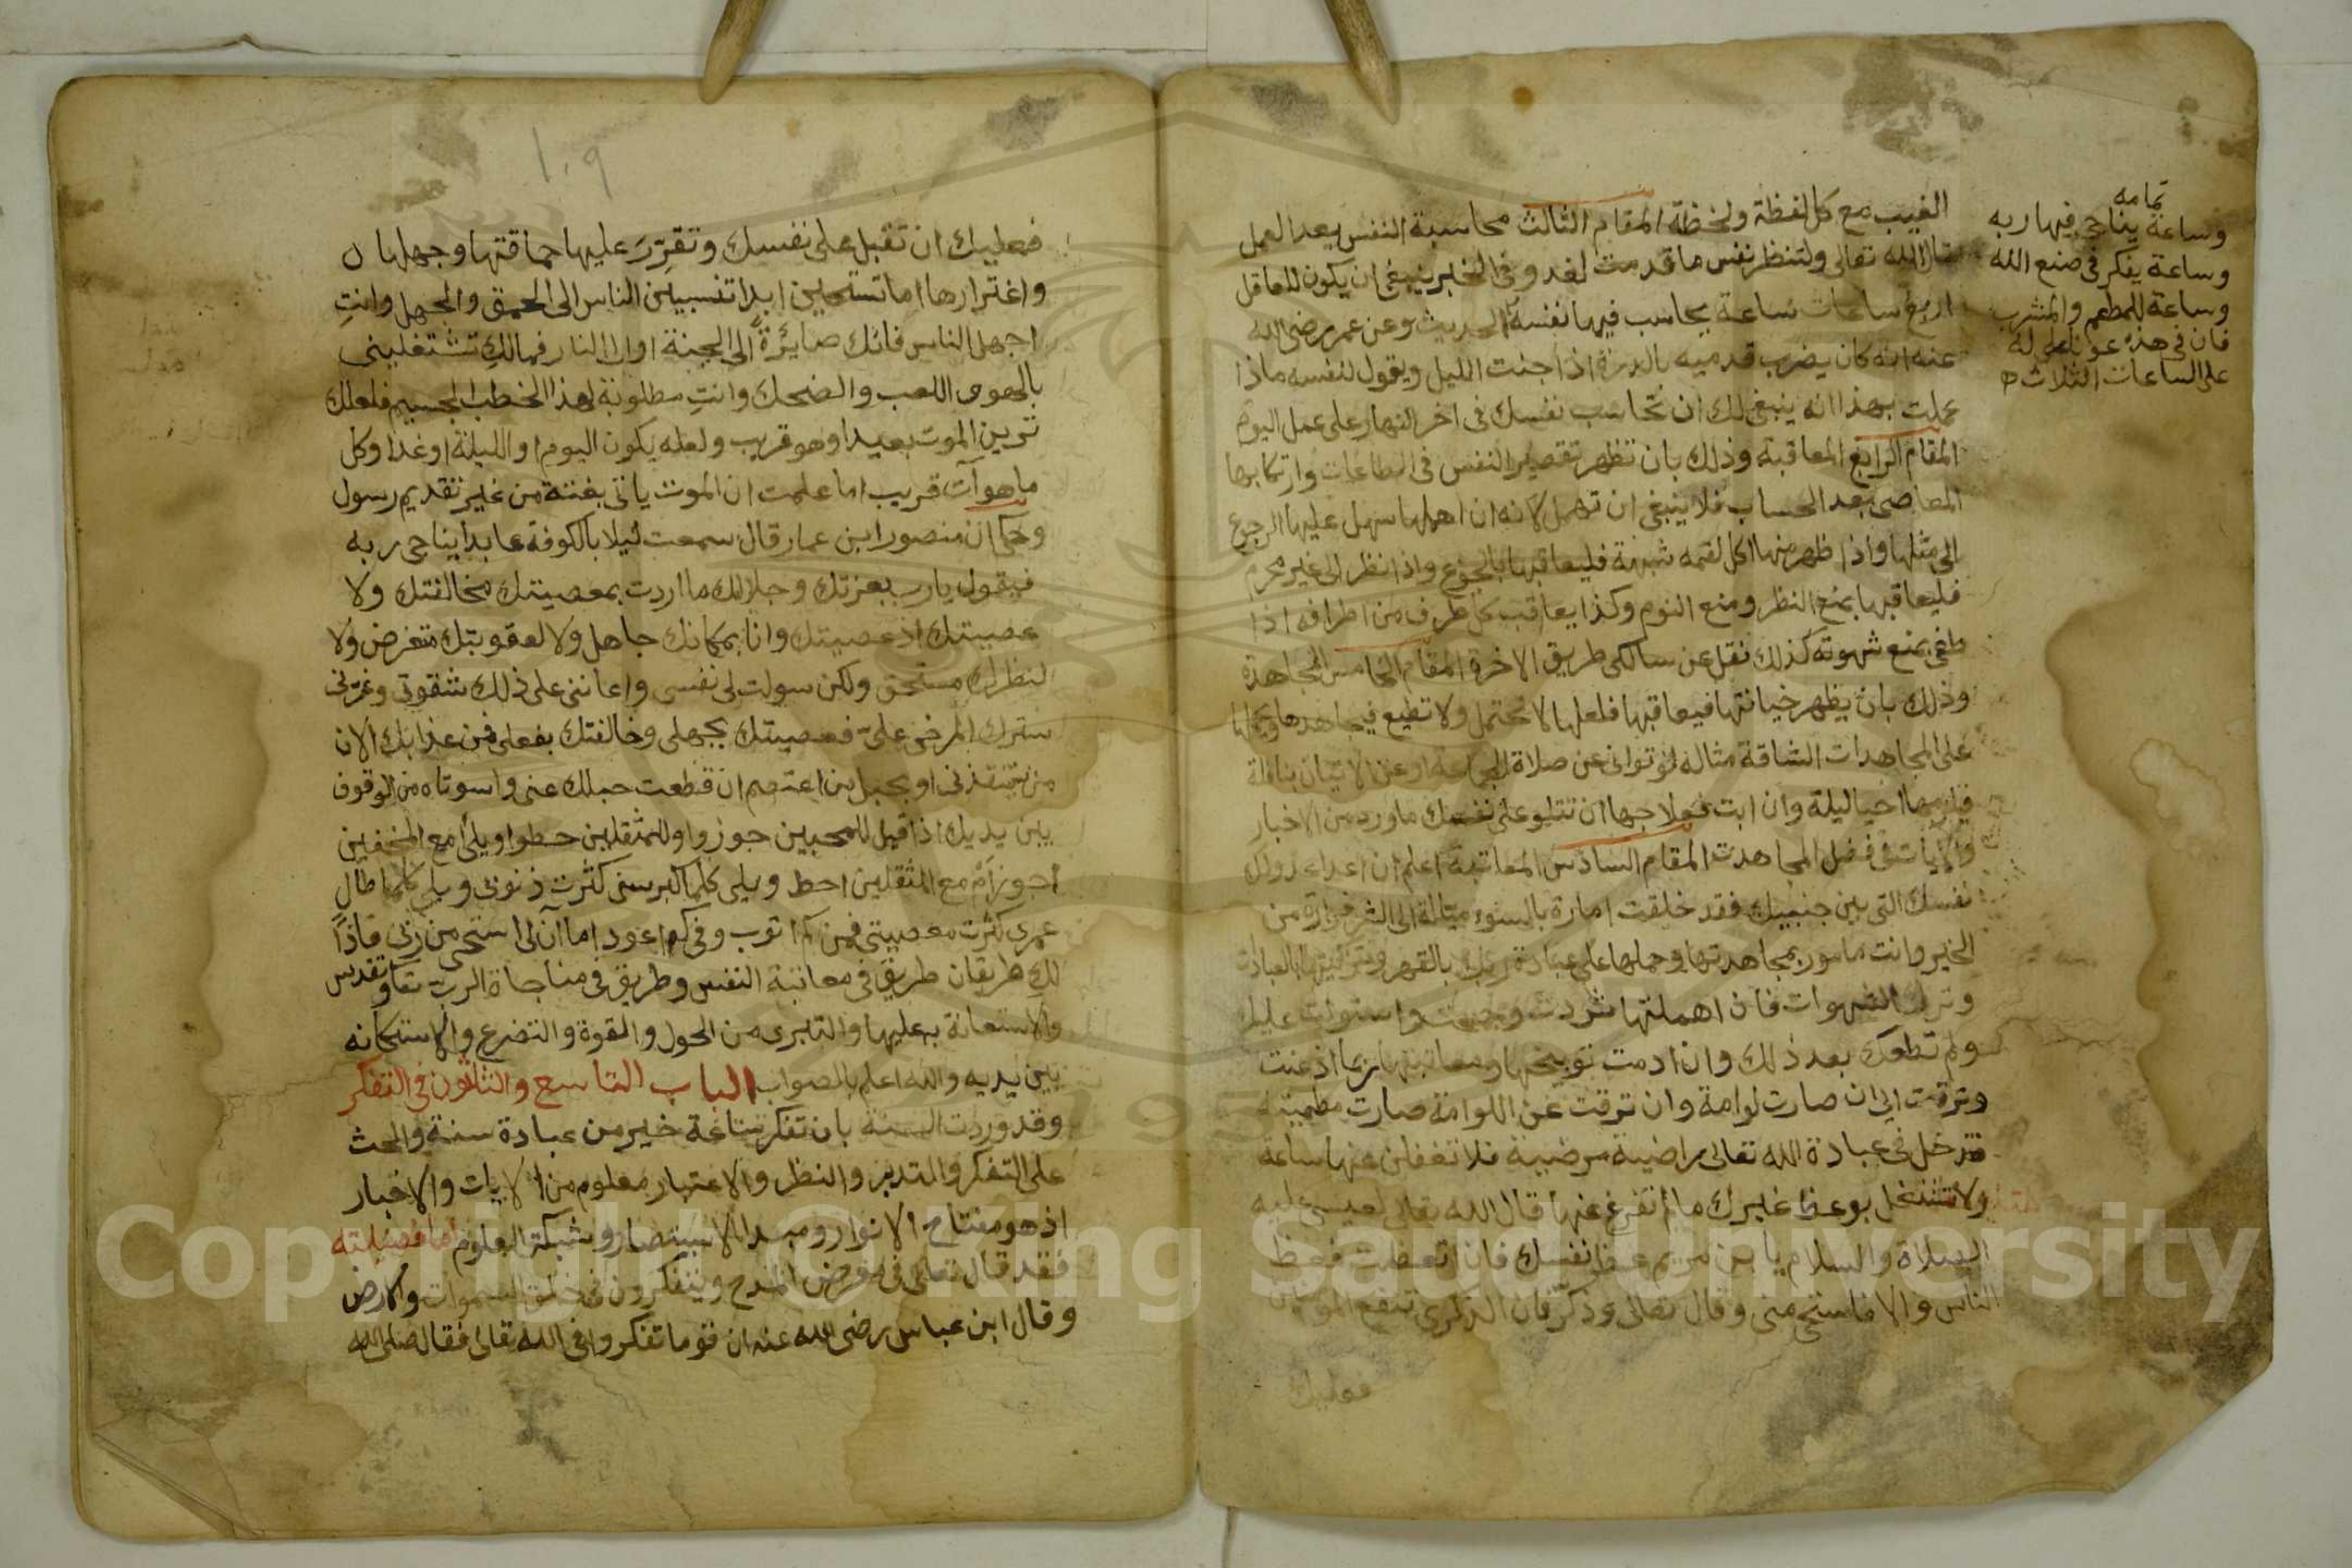 الغيب مع كل لفظة ولحظة المقام الثالث محاسبة النفس بعد العمل
قال الله تعالى ولتنظر نفس ما قدمت لغد وفي الخبر ينبغي ان يكون للعاقل
اربع ساعات ساعة يحاسب فيها نفسه الحديث وعن عمر رضى الله
عنه انه كان يضرب قدميه بالدرة اذا جنت الليل ويقول لنفسه ماذا
عملت بهذا انه ينبغي لك ان تحاسب نفسك في اخر النهار على عمل اليوم
المقام الرابع المعاقبة وذلك بان تظهر تقصير النفس في الطاعات وارتكابها
المعاصي بعد الحساب فلا ينبغي ان تهمل لانه ان اهملها سهل عليها الرجوع
الى مثلها واذا ظهر منها اكل لقمه شبهة فليعاقبها بالجوع واذا نظر الى غير محرم
فليعاقبها بمنع النظر ومنع النوم وكذا يعاقب كل طرف من اطرافه اذا
طغى بمنع شهوته كذلك نقل عن سالكى طريق الاخرة المقام الخامس المجاهدة
وذلك بان يظهر خيانتها فيعاقبها فلعلها لا تحتمل ولا تطيع فيجاهدها
على المجاهدات الشاقة مثاله لو توانى عن صلاة الجماعة او عن الاتيان بنافلة
فيلزمها احيا ليلة وان ابت فعلاجها ان تتلو على نفسك ما ورد من الاخبار
والايات في فضل المجاهدت المقام السادس المعاتبة اعلم ان اعداء عدوك
نفسك التى بين جنبيك فقد خلقت امارة بالسوء ميالة الى الشر فرارة من
الخير وانت مامور بمجاهدتها وحملها على عبادة ربك بالقهر
وترك الشهوات فان اهملتها شردت وجمحت واستولت عليك
ولم تطعك بعد ذلك وان ادمت توبيخها ومعاتبتها ربما اذعنت
وترقت الى ان صارت لوامة وان ترقت عن اللوامة صارت مطمئنة
فتدخل في عبادة الله تعالى راضية مرضية فلا تغفلن عنها ساعة
ولا تشتغل بوعظ غيرك ما لم تفرغ عنها قال الله تعالى لعيسى عليه
الصلاة والسلام يا بن مريم عظ نفسك فان اتعظت فعظ
الناس والا فاستحى منى وقال تعالى وذكر فان الذكرى تنفع المومنين
فعليك
تمامه
وساعة يناجى فيها ربه
وساعة يفكر فى صنع الله
وساعة للمطعم والمشرب
فان في هذه عونا على له
على الساعات الثلاث
١٠٩
فعليك ان تقبل على نفسك وتقرر عليها حماقتها وجهلها
واغترارها اما تستحيين ابدا تنسبين الناس الى الحمق والجهل وانت
اجهل الناس فانك صايرة الى الجنة او الى النار فمالك تشتغلينى
باللهو واللعب والضحك وانت مطلوبة لهذا الخطب الجسيم فلعلك
ترين الموت بعيدا وهو قريب ولعله يكون اليوم او الليلة او غدا وكل
ما هو آت قريب اما علمت ان الموت ياتى بغتة من غير تقديم رسول
وحكى ان منصور ابن عمار قال سمعت ليلا بالكوفة عابدا يناجى ربه
فيقول يا رب بعزتك وجلالك ما اردت بمعصيتك مخالفتك ولا
عصيتك اذ عصيتك وانا بمكانك جاهل ولا لعقوبتك متعرض ولا
لنظرك مستحق ولكن سولت لى نفسى واعاننى على ذلك شقوتى وغرنى
سترك المرخى على فعصيتك بجهلى وخالفتك بفعلى فمن عذابك الان
من ينقذنى او بحبل من اعتصم ان قطعت حبلك عنى واسوتاه من الوقوف
بين يديك اذا قيل للمحبين جوزوا وللمثقلين حطوا ويلى أمع المخفين
اجوز ام مع المثقلين احط ويلى كلما كبر سنى كثرت ذنوبى ويلى كلما طال
عمرى كثرت معصيتى فمن كم اتوب وفى كم اعود اما آن لى استحى من ربى فاذا
لك طريقان طريق فى معاتبة النفس وطريق فى مناجاة الرب تعالى وتقدس
والاستعانة به عليها والتبرى من الحول والقوة والتضرع والاستكانه
بين يديه والله اعلم بالصواب الباب التاسع والثلاثون فى التفكر
وقد وردت السنة بان تفكر ساعة خير من عبادة سنة والحث
على التفكر والتدبر والنظر والاعتبار معلوم من الايات والاخبار
اذ هو مفتاح الانوار ومبدا الاستبصار وشبكة العلوم اما فضيلته
فقد قال تعالى فى معرض المدح ويتفكرون فى خلق السموات والارض
وقال ابن عباس رضى الله عنه ان قوما تفكروا فى الله تعالى فقال صلى الله
Copyright © King Saud University
1957